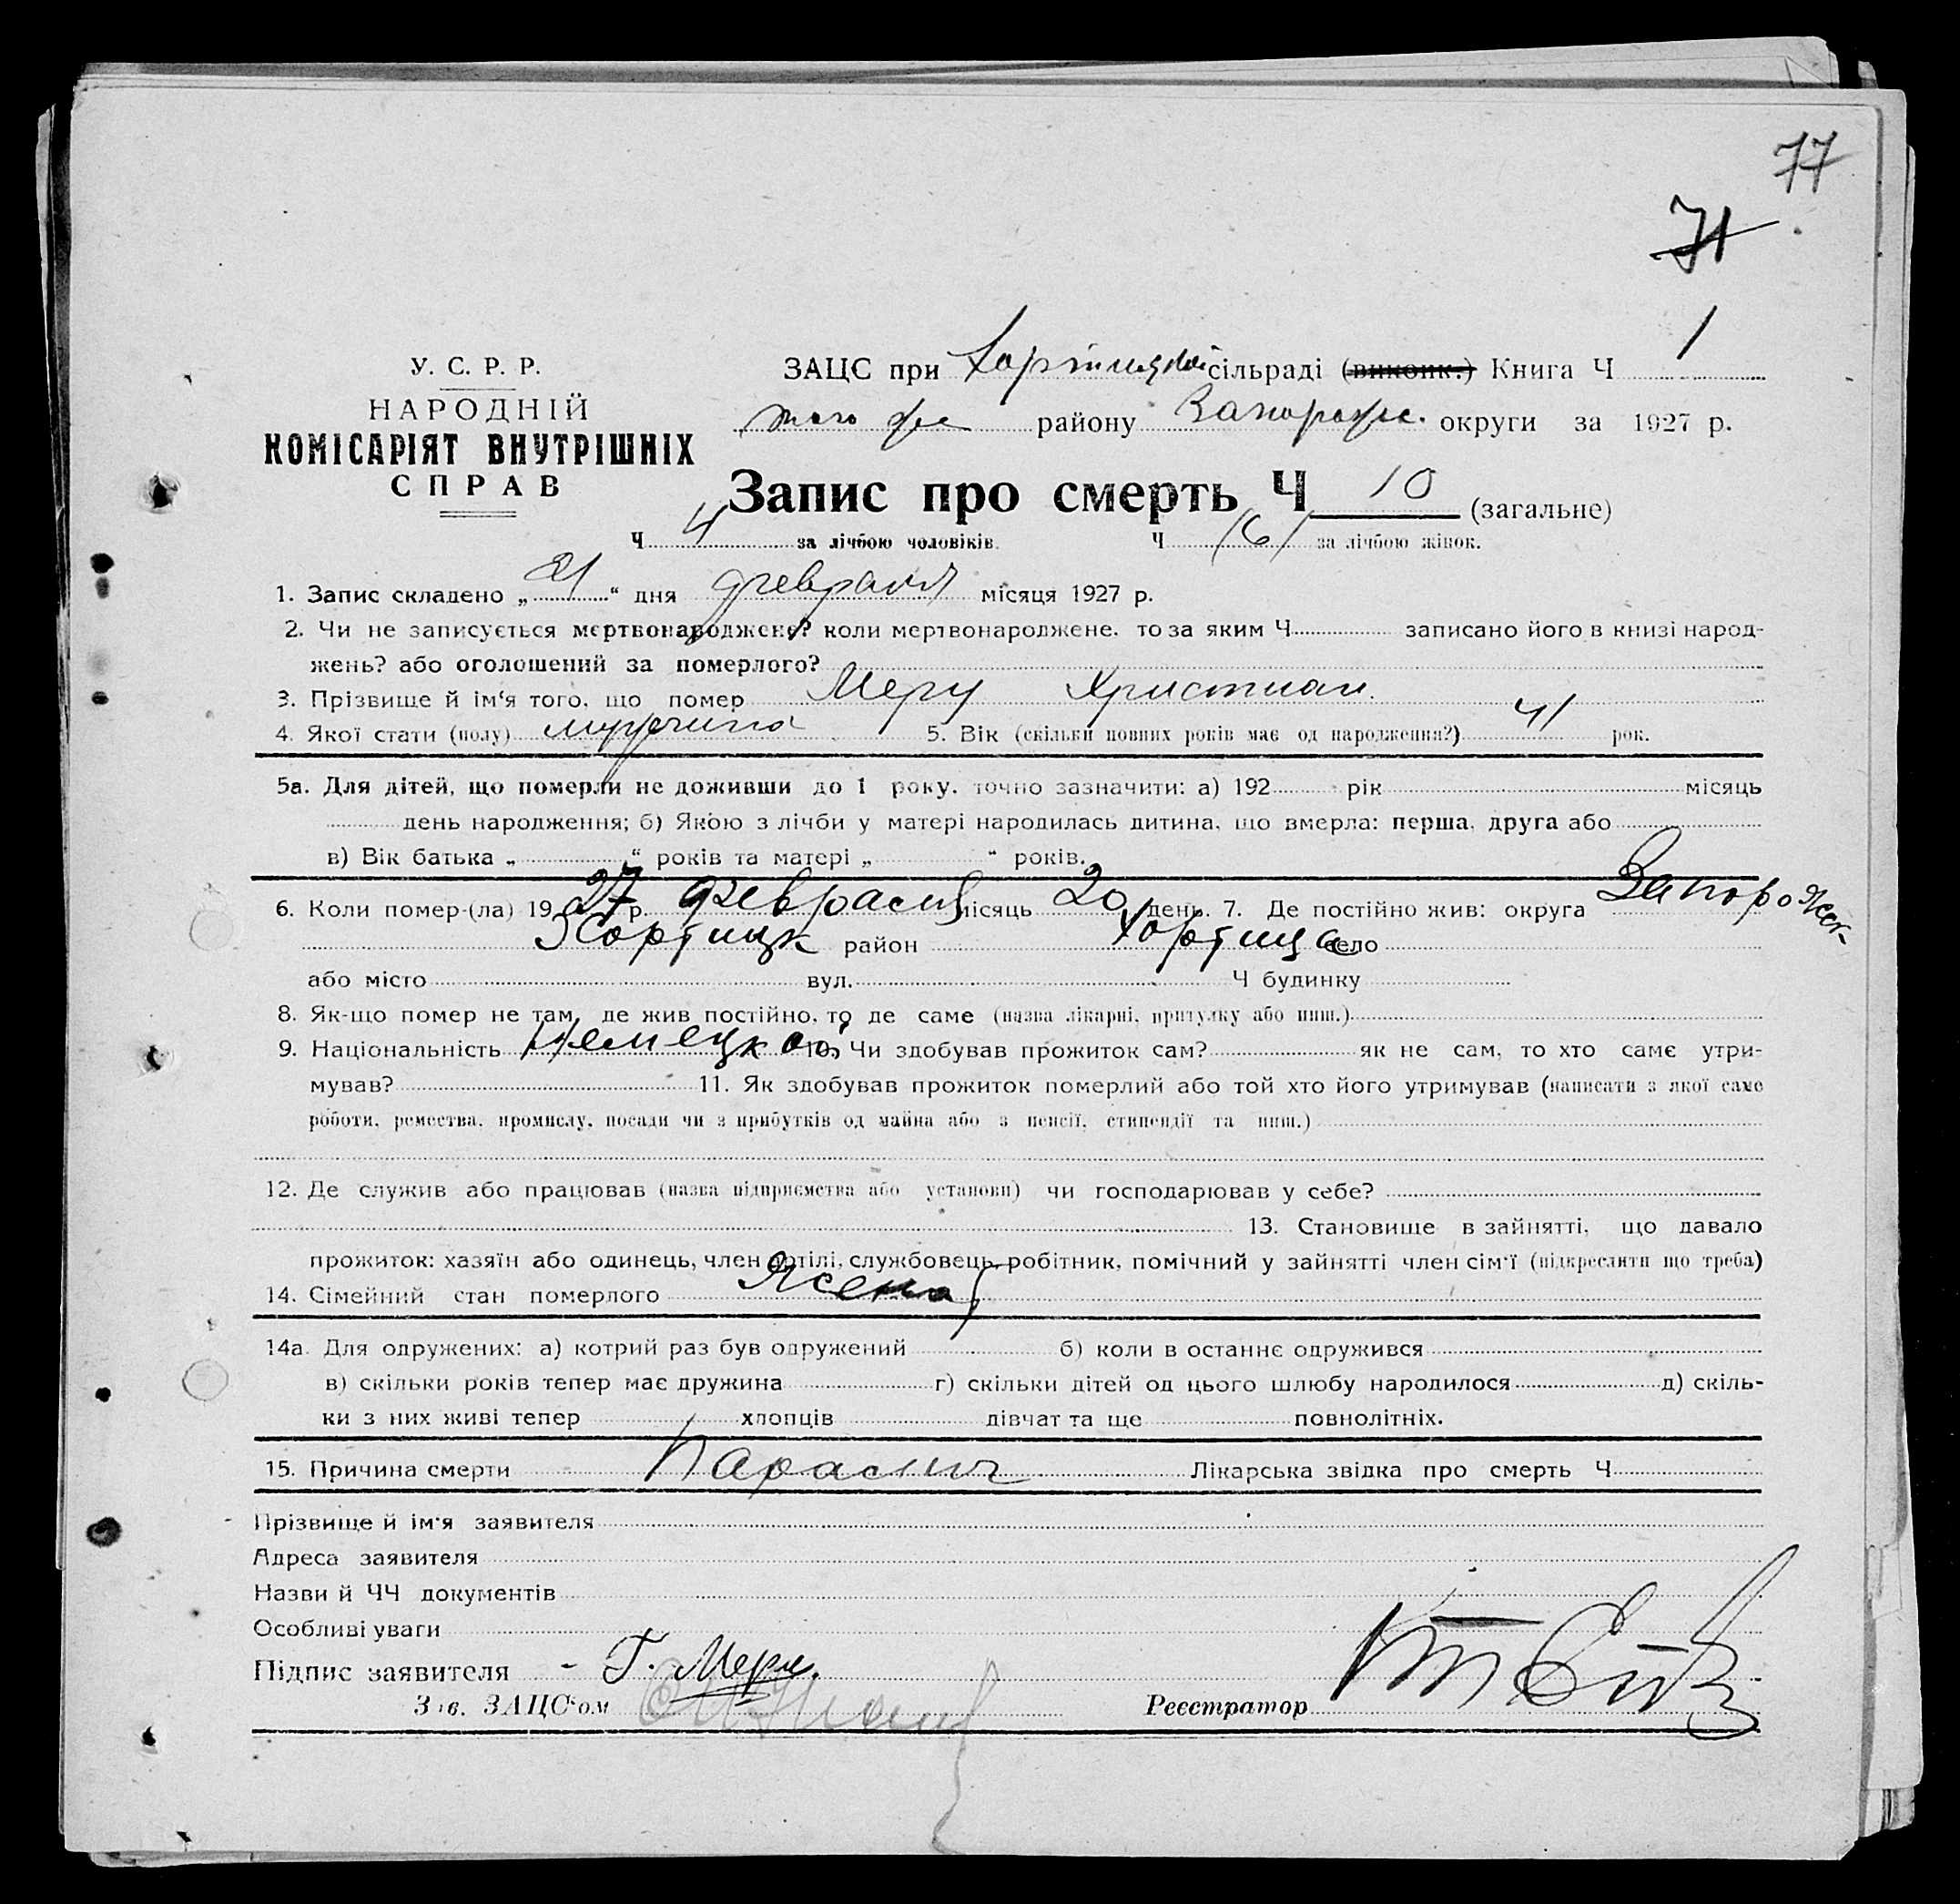 77
71
1
У. С. Р. Р.
НАРОДНІЙ
КОМІСАРІЯТ ВНУТРІШНІХ
СПРАВ
ЗАЦС при Хортицкой сільраді (виконк.) Книга Ч
того же району Запорожс. округи за 1927 р.
Запис про смерть Ч 10 (загальне)
Ч 4 за лічбою чоловіків. Ч (6) за лічбою жінок.
1. Запис складено „ 21 “ дня февраля місяця 1927 р.
2. Чи не записується мертвонароджене? коли мертвонароджене, то за яким Ч записано його в книзі народ-
жень? або оголошений за померлого?
3. Прізвище й ім‘я того, що помер Мерц Христиан.
4. Якої стати (полу) мужчина 5. Вік (скільки повних років має од народження?) 41 рок.
5а. Для дітей, що померли не доживши до 1 року, точно зазначити: а) 192 рік місяць
день народження; б) Якою з лічби у матері народилась дитина, що вмерла: перша, друга або
в) Вік батька „ “ років та матері „ “ років.
6. Коли помер-(ла) 19 27 р. февраля місяць 20 день. 7. Де постійно жив: округа Запорожск-
Хортицк район Хортица село
або місто вул. Ч будинку
8. Як-що помер не там, де жив постійно, то де саме (назва лікарні, притулку або инш.)
9. Національність Немецкой 10. Чи здобував прожиток сам? як не сам, то хто саме утри-
мував? 11. Як здобував прожиток померлий або той хто його утримував (написати з якої саме
роботи, ремества, промислу, посади чи з прибутків од майна або з пенсії, стипендії та инш.)
12. Де служив або працював (назва підприємства або установи) чи господарював у себе?
13. Становище в зайнятті, що давало
прожиток: хазяїн або одинець, член артілі, службовець, робітник, помічний у зайнятті член сім‘ї (підкреслити що треба)
14. Сімейний стан померлого Женат
14а. Для одружених: а) котрий раз був одружений б) коли в останнє одружився
в) скільки років тепер має дружина г) скільки дітей од цього шлюбу народилося д) скіль-
ки з них живі тепер хлопців дівчат та ще повнолітніх.
15. Причина смерти Паралич Лікарська звідка про смерть Ч
Прізвище й ім‘я заявителя
Адреса заявителя
Назви й ЧЧ документів
Особливі уваги
Підпис заявителя - Г. Мерц.
Зав. ЗАЦС‘ом
Реєстратор